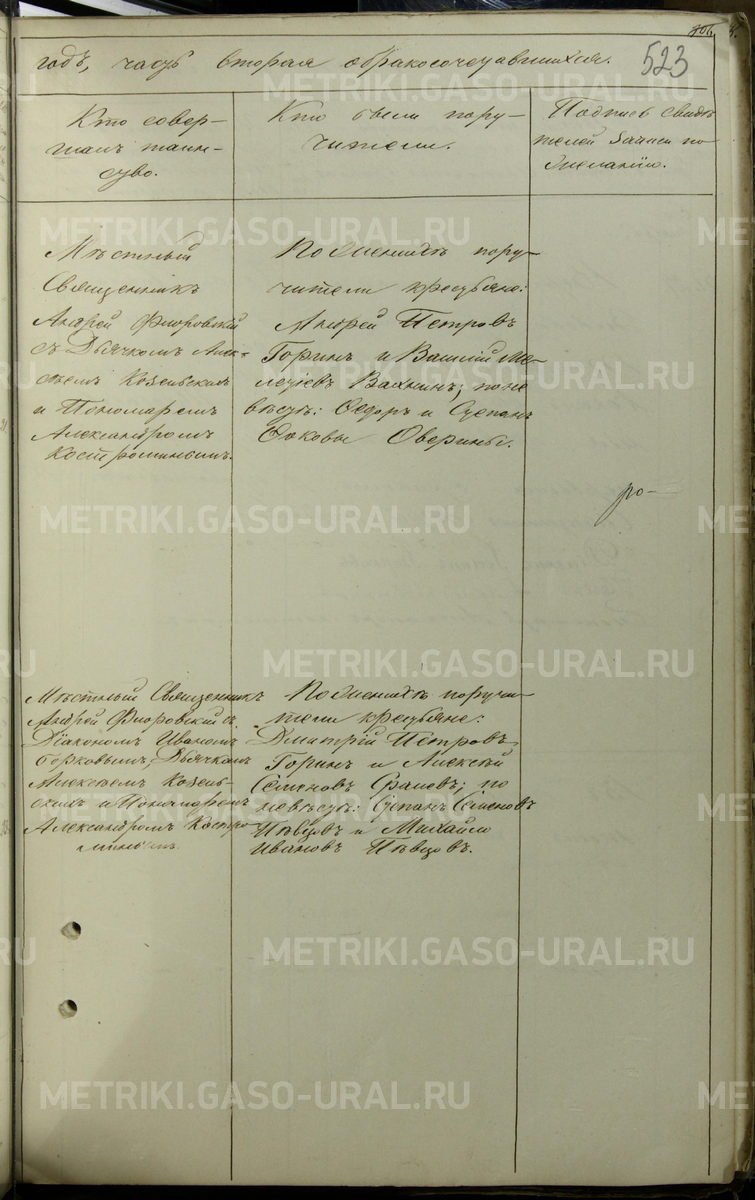 523
годъ, часть вторая о бракосочетавшихся.
Кто совер-
шалъ таин-
ство.
Кто были пору-
чители.
Подпись свидѣ
телей записи по
желанію.
Мѣстный
Священникъ
Андрей Флоровскій
съ Дьячкомъ Алек-
сѣемъ Козельскимъ
и Пономаремъ
Александромъ
Костроминымъ.
По женихѣ пору-
чители крестьяне:
Андрей Петровъ
Горинъ и Василій Ме-
летіевъ Вахнинъ; по не
вѣстѣ: Ѳедоръ и Степанъ
Оверины.
ро-
Мѣстный Священникъ
Андрей Флоровскій съ
Діакономъ Иваномъ
Дьячкомъ
Алексѣемъ Козель-
скимъ и Пономаремъ
Александромъ Костро
минымъ.
По женихѣ поручи-
тели крестьяне:
Дмитрій Петровъ
Горинъ и Алексѣй
Семеновъ по
невѣстѣ: Степанъ Семеновъ
Пѣвцовъ и Михайло
Ивановъ Пѣвцовъ.
METRIKI.GASO-URAL.RU